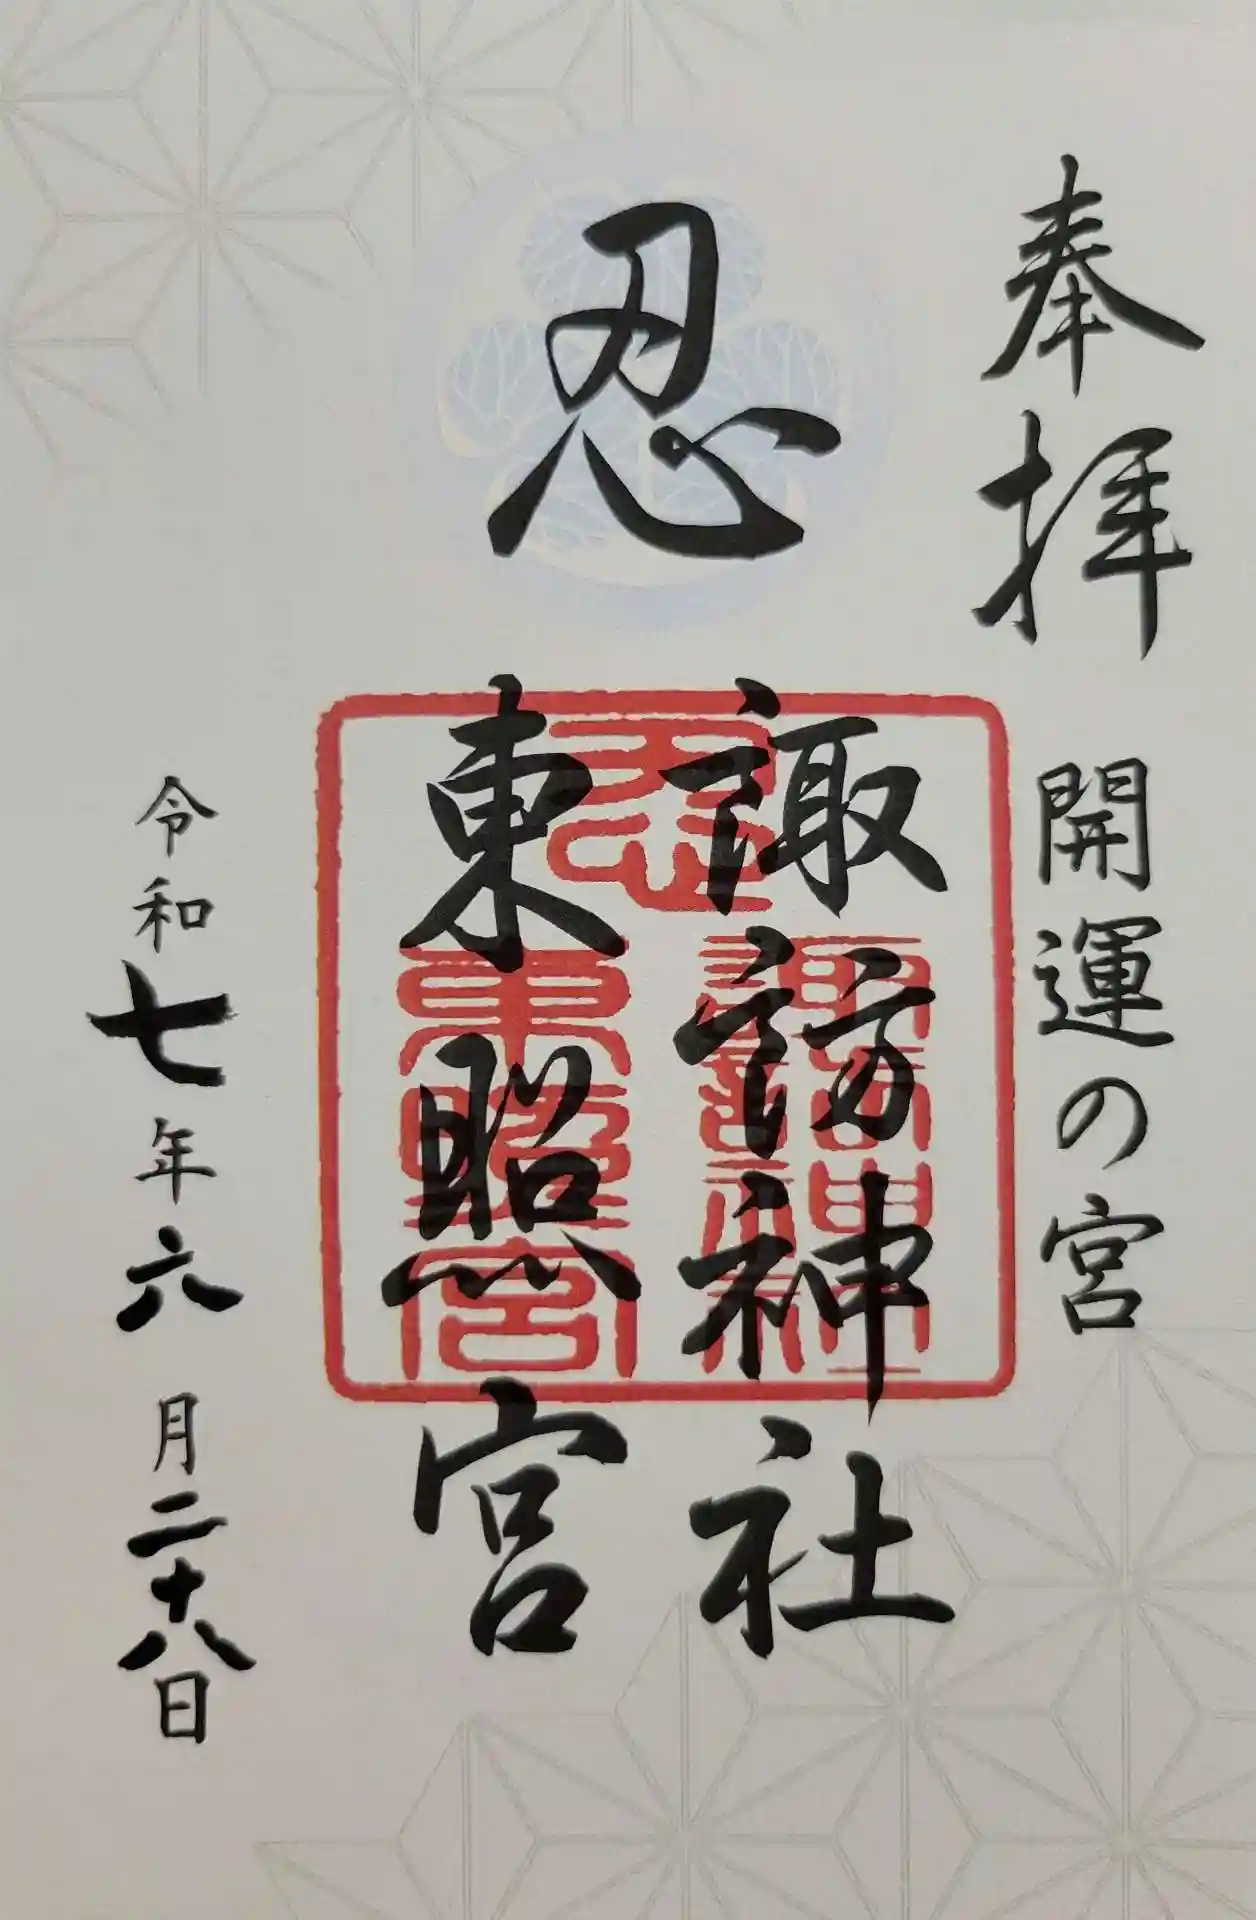 奉拝
開運の宮
忍
諏訪神社
東照宮
忍
諏訪神社
東照宮
令和七年六月二十八日